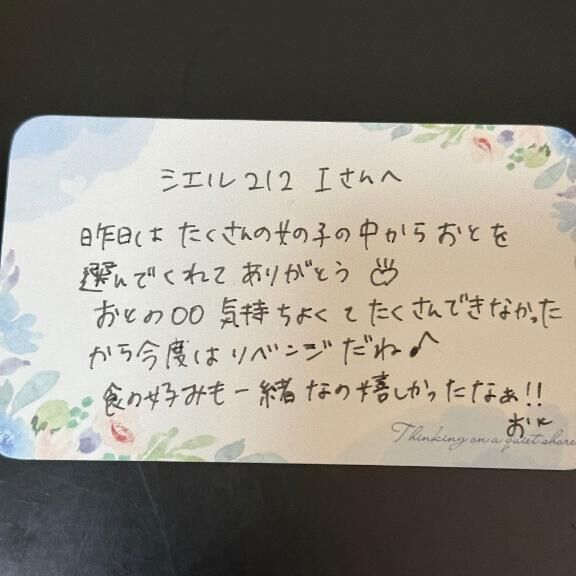 シエル212 Iさんへ
昨日は たくさんの女の子の中から おとを
選んでくれて ありがとう
おとの〇〇 気持ちよくて たくさんできなかった
から今度は リベンジだね♪
食の好みも一緒なの嬉しかったなぁ!!
おと
Thinking on a quiet shore